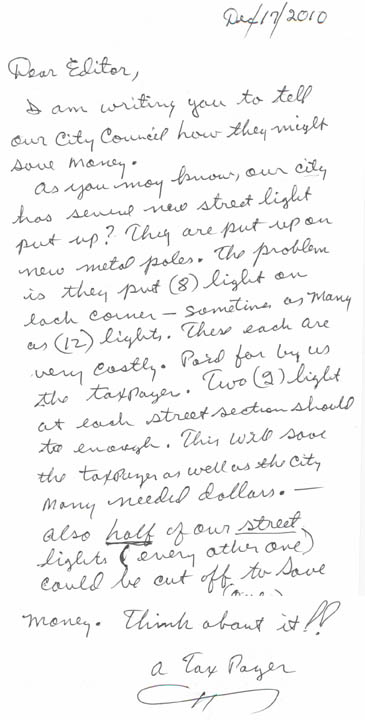 Dec/17/2010
Dear Editor,
I am writing you to tell
our City Council how they might
save money.
As you may know, our city
has several new street light
put up? They are put up on
new metal poles. The problem
is they put (8) light on
each corner – sometimes as many
as (12) lights. These each are
very costly. Paid for by us
the taxpayer. Two (2) light
at each street section should
be enough. This will save
the taxpayer as well as the city
many needed dollars. –
also half of our street
lights (every other one)
could be cut off to save
money. Think about it!!
a Tax Payer